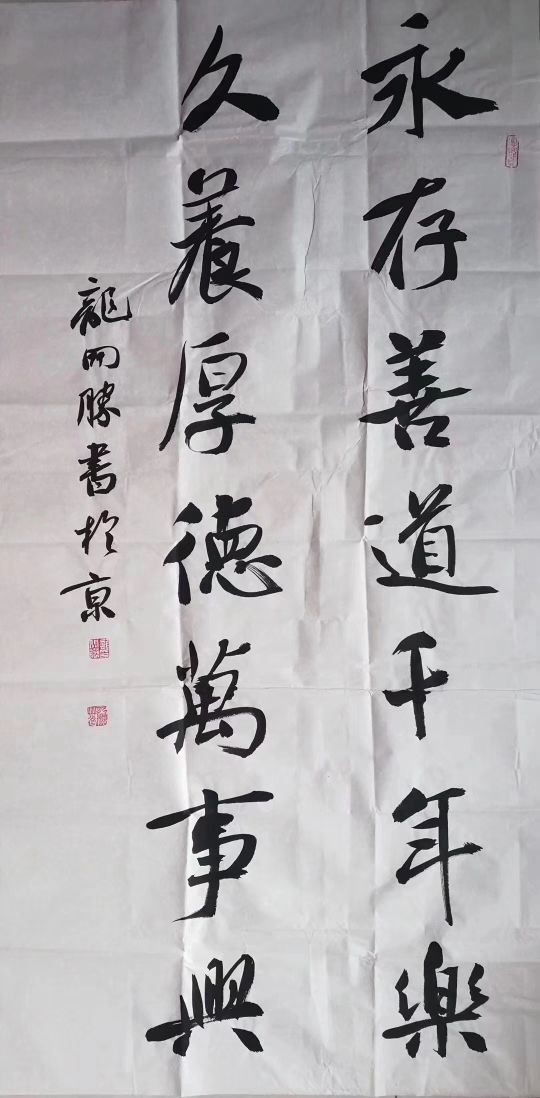 永存善道千年樂
久養厚德萬事興
龍開勝書於京